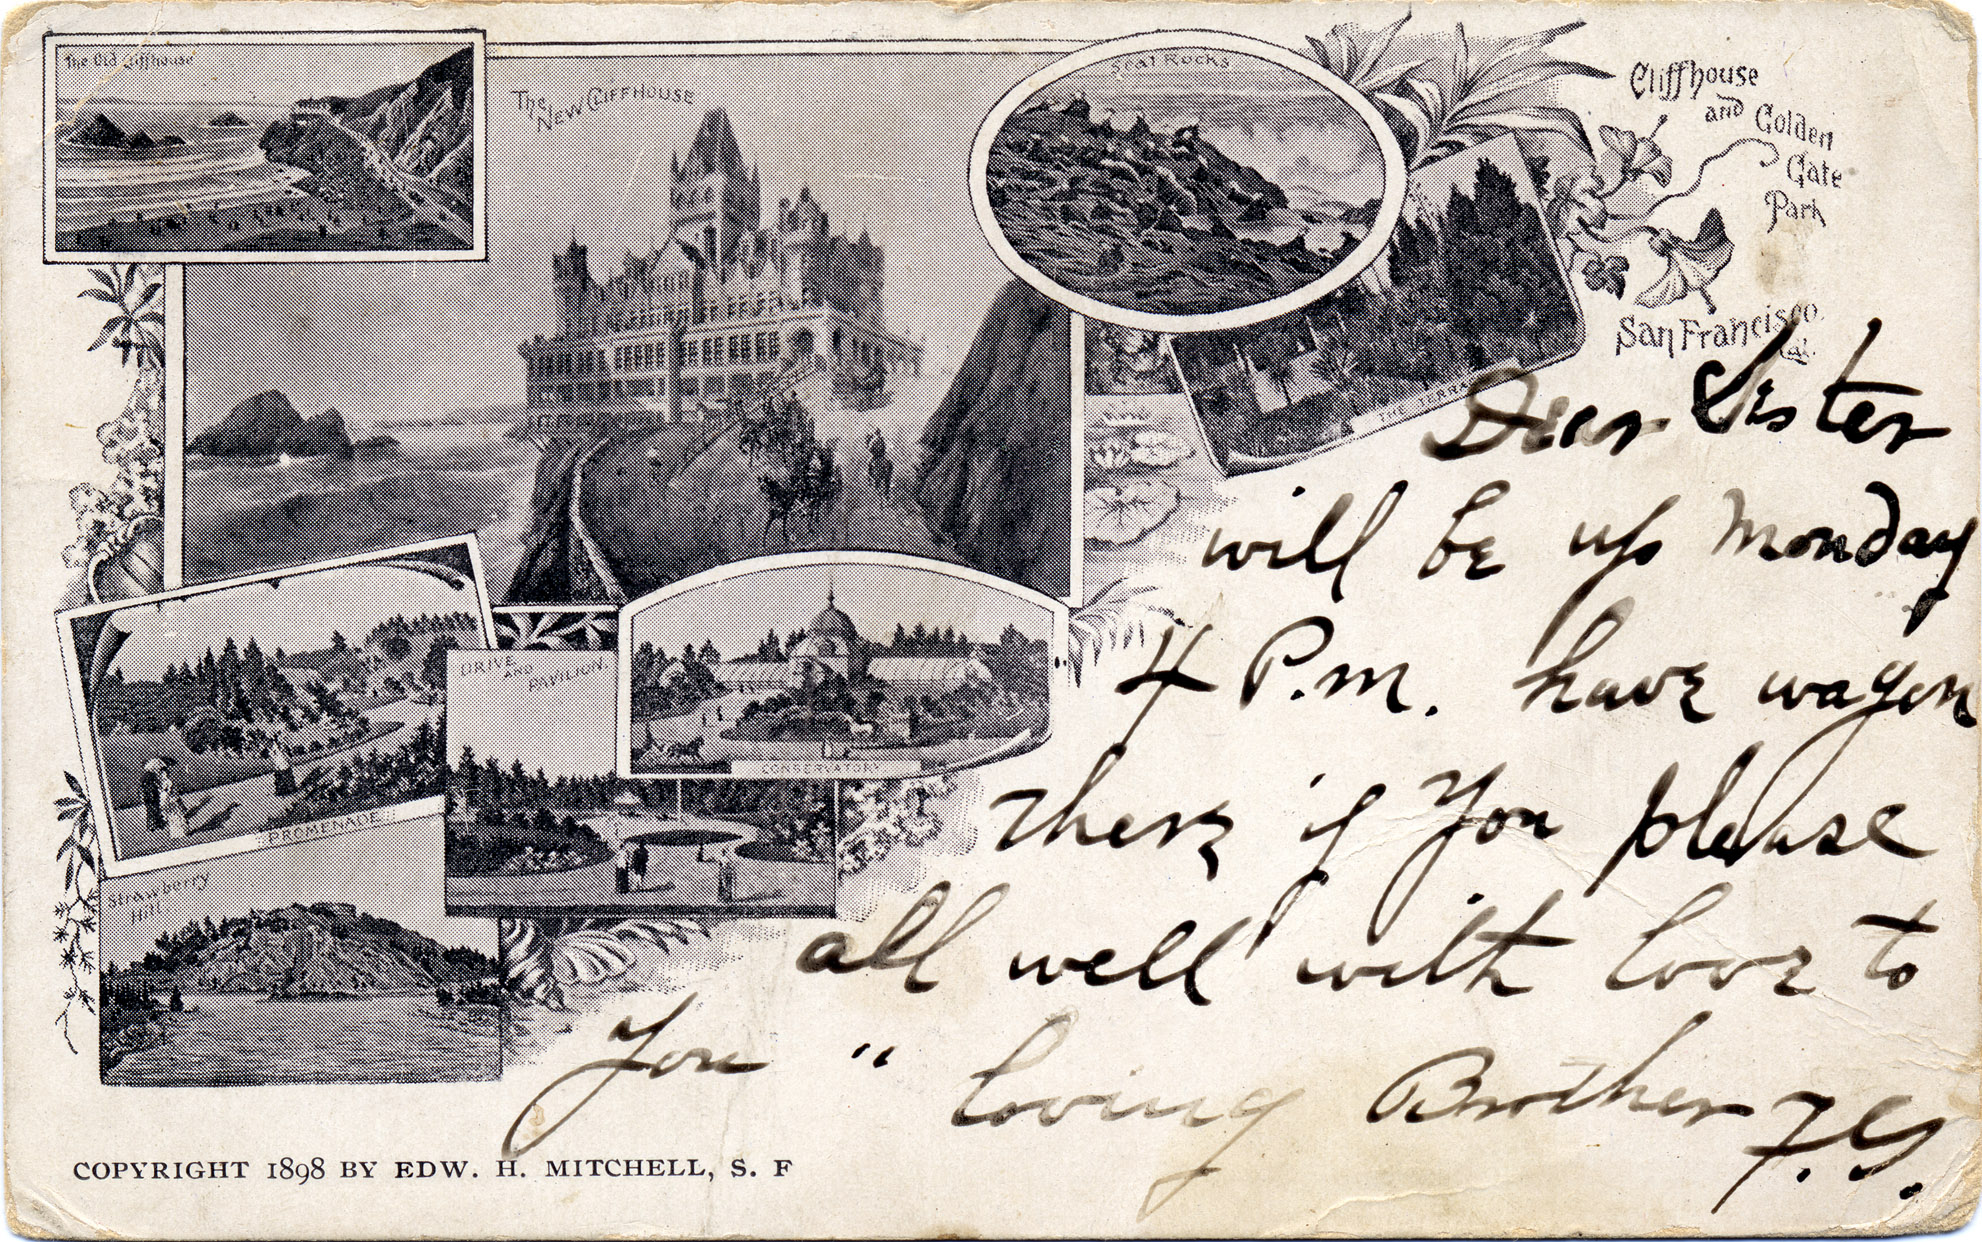 The Old Cliffhouse
The New Cliffhouse
Seal Rocks
Cliffhouse
and Golden
Gate
Park
San Francisco
Cal.
THE TERRA
DRIVE
AND PAVILION.
CONSERVATORY
PROMENADE
Strawberry
Hill
Dear Sister
will be up Monday
4 P.m. have wagon
there if you please
all well with love to
you " loving Brother F.G.
COPYRIGHT 1898 BY EDW. H. MITCHELL, S. F